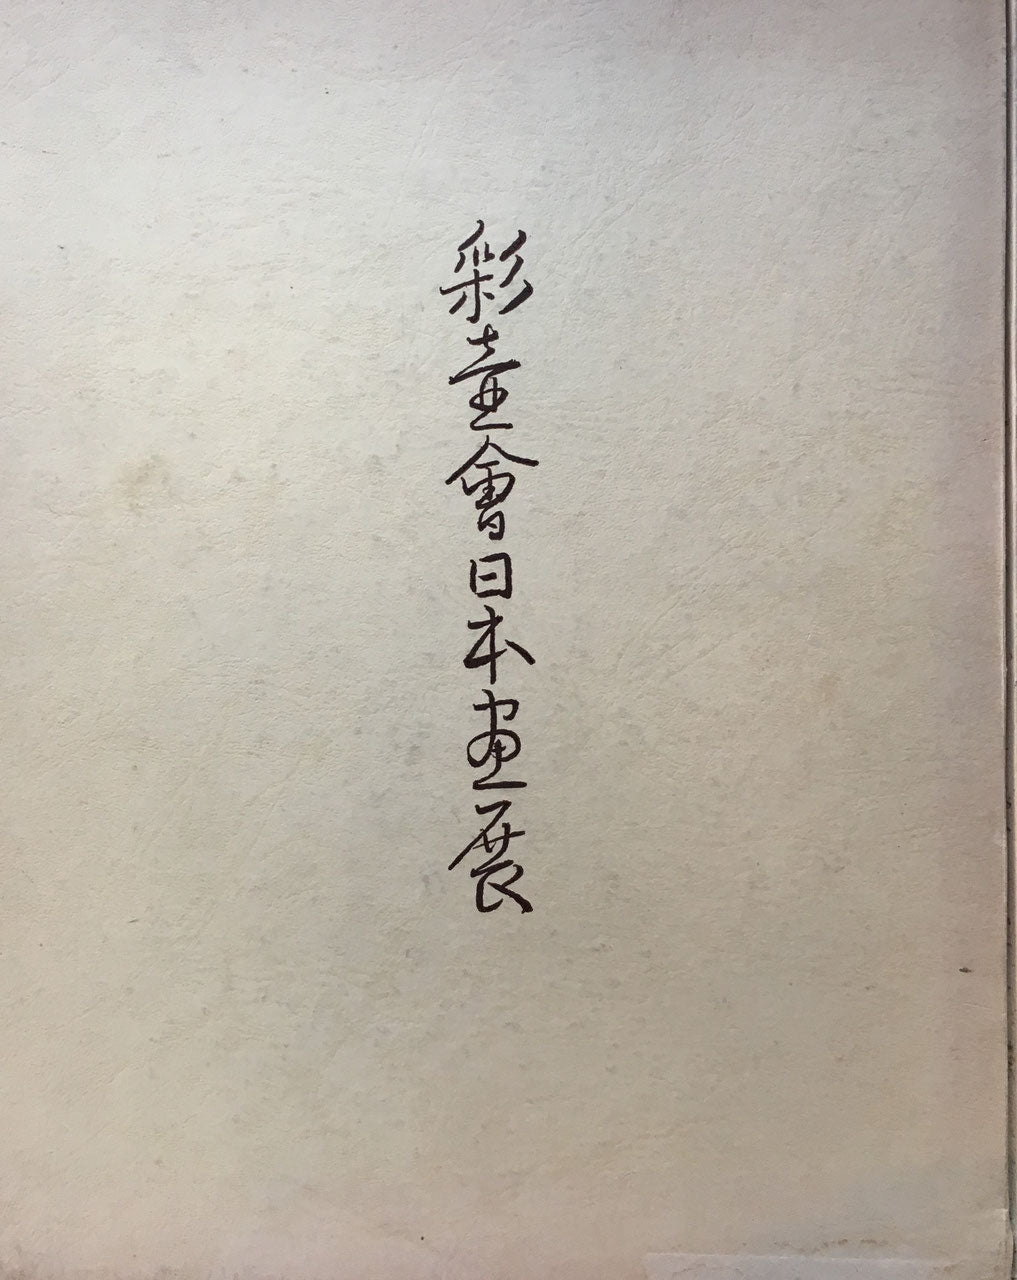 彩壺會日本画展